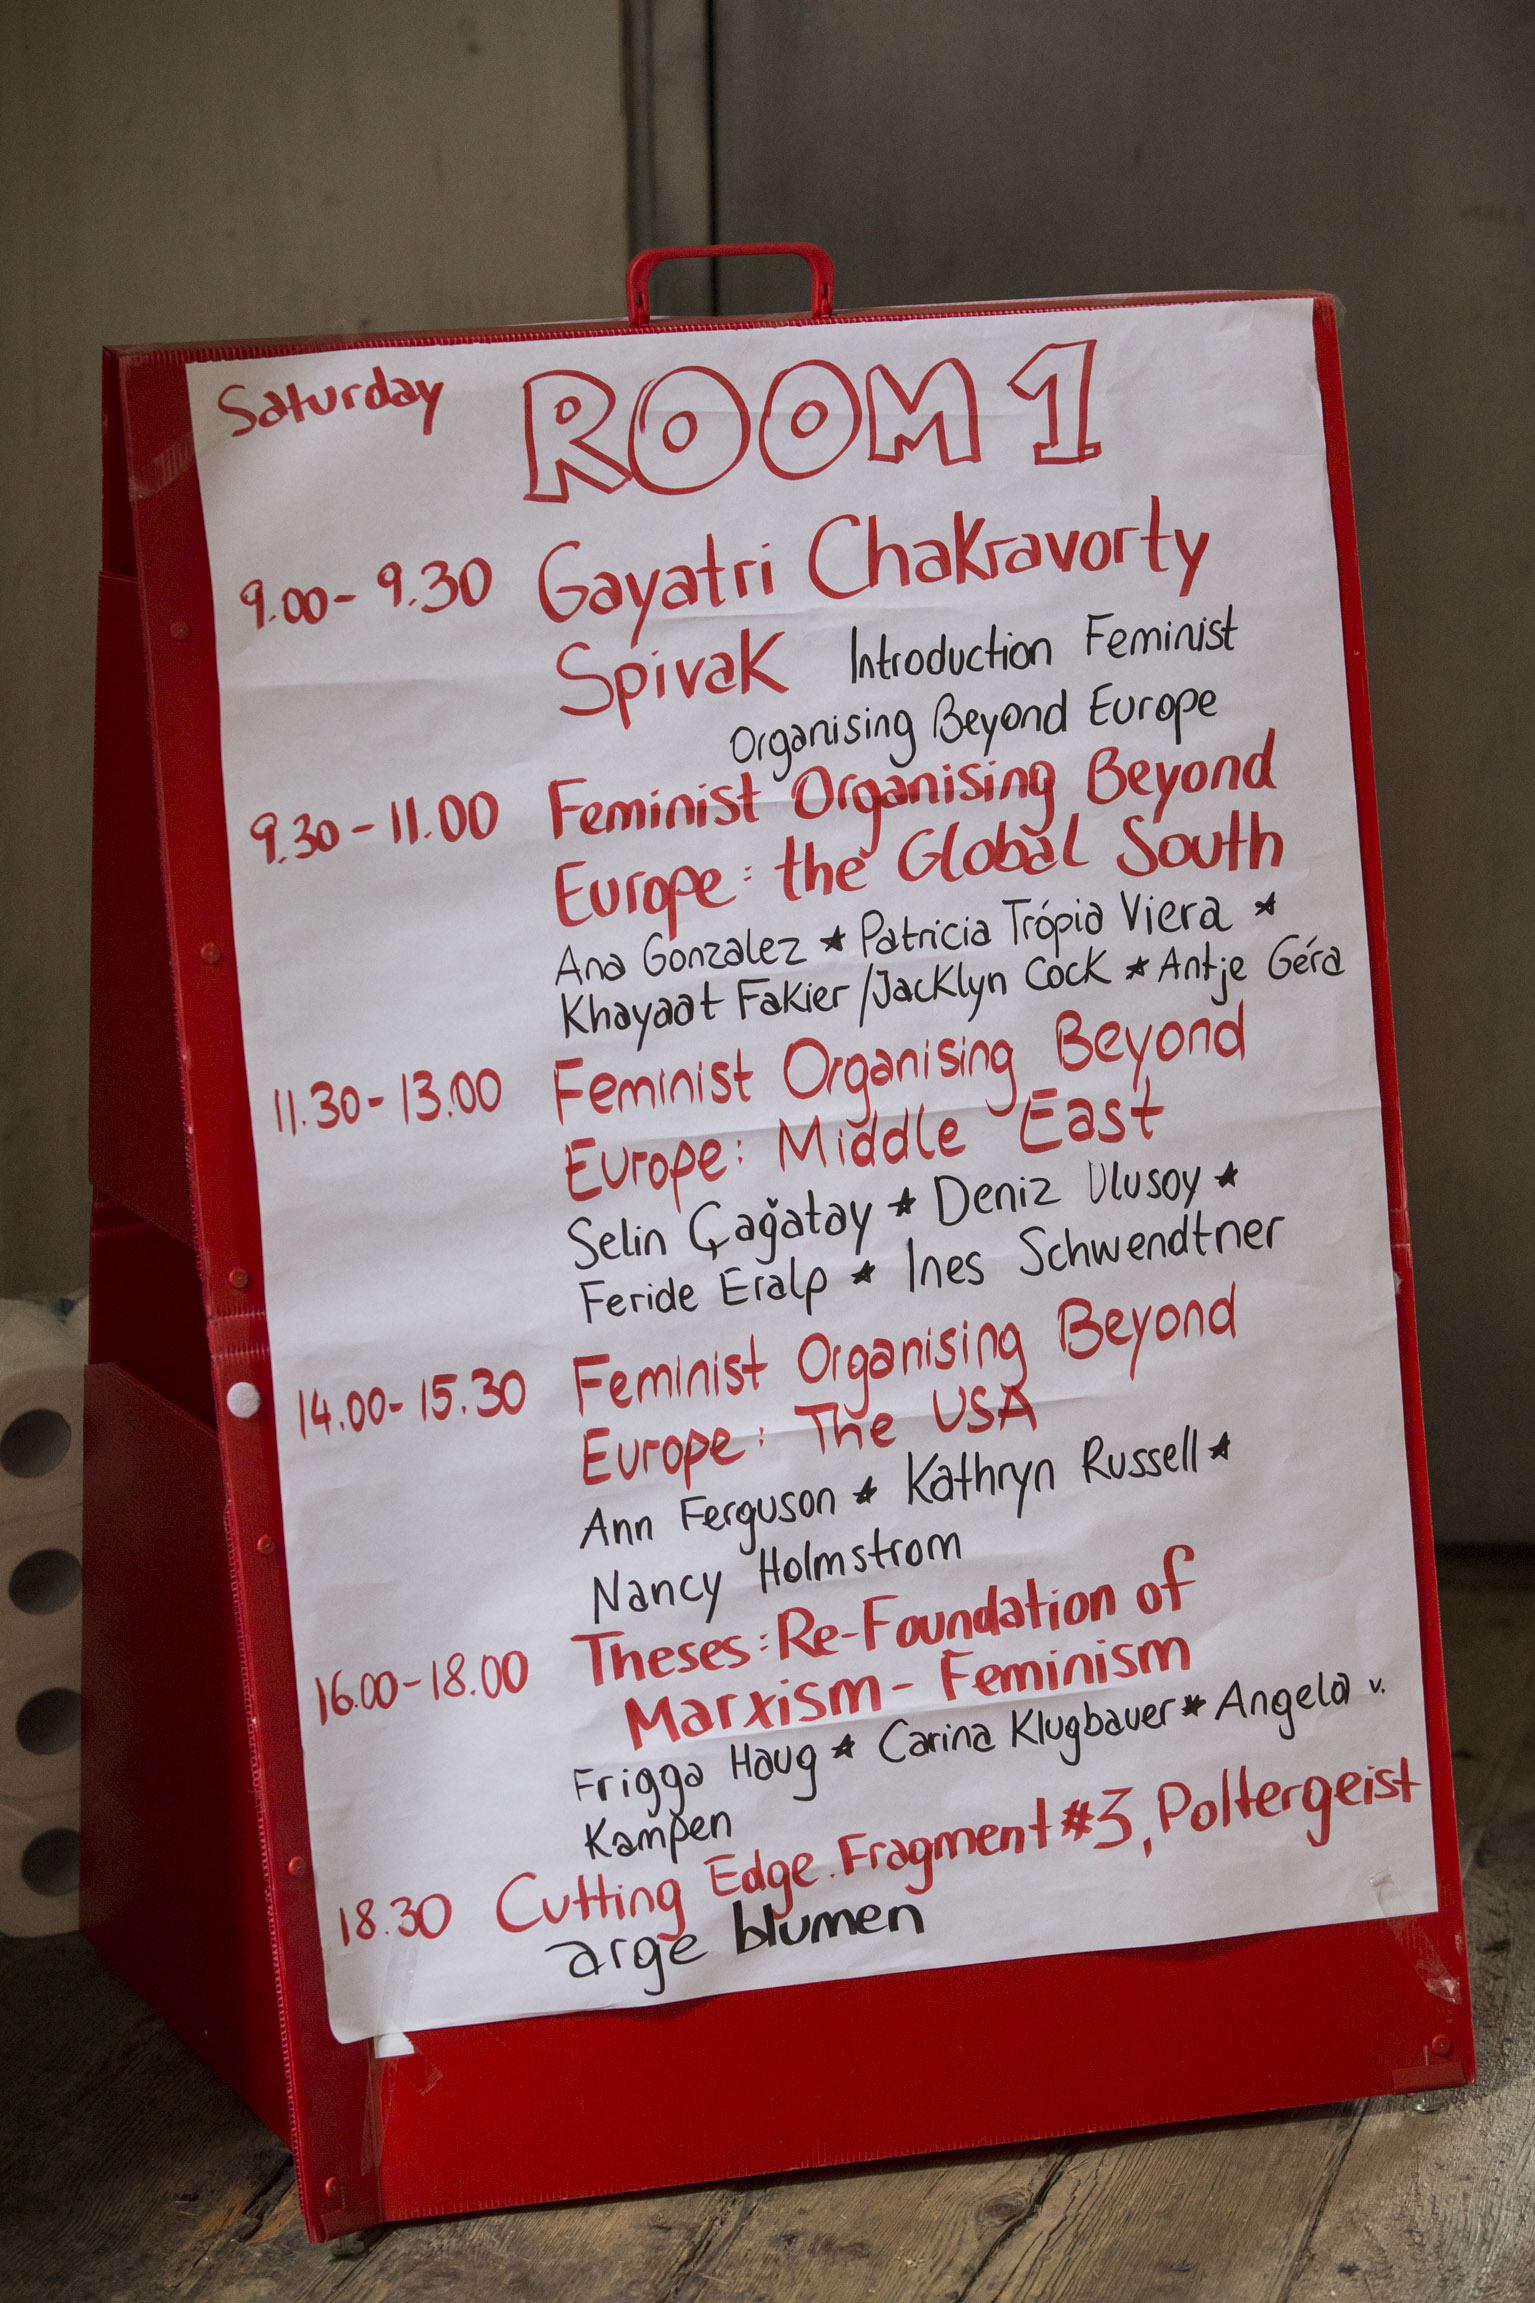 Saturday ROOM 1
9.00 - 9.30 Gayatri Chakravorty
Spivak Introduction Feminist
Organising Beyond Europe
9.30 - 11.00 Feminist Organising Beyond
Europe: the Global South
Ana Gonzalez ★ Patricia Trópia Viera ★
Khayaat Fakier / Jacklyn Cock ★ Antje Géra
11.30 - 13.00 Feminist Organising Beyond
Europe: Middle East
Selin Çağatay ★ Deniz Ulusoy ★
Feride Eralp ★ Ines Schwendtner
14.00 - 15.30 Feminist Organising Beyond
Europe: The USA
Ann Ferguson ★ Kathryn Russell ★
Nancy Holmstrom
16.00 - 18.00 Theses: Re-Foundation of
Marxism - Feminism
Frigga Haug ★ Carina Klugbauer ★ Angela v.
Kampen
18.30 Cutting Edge. Fragment #3, Poltergeist
arge blumen